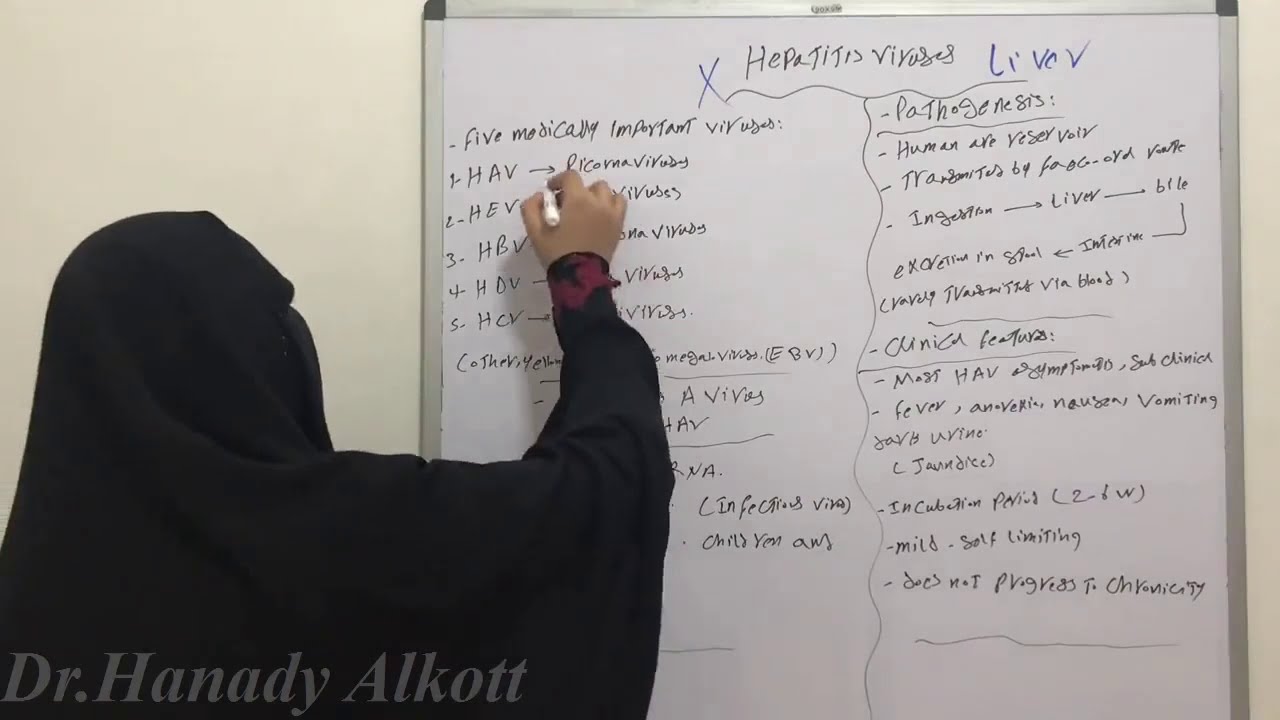 X Hepatitis viruses Liver
- Five medically important viruses:
1- HAV → Picornaviruses
2- HEV viruses
3- HBV na viruses
4- HDV → viruses
5- HCV → viruses.
(other, yellow megaloviruses. (EBV))
- A Virus
HAV
RNA.
(Infectious virus)
. children and
- Pathogenesis:
- Human are reservoir
- Transmitted by faeco-oral route
- Ingestion → Liver → bile
excretion in stool ← Intestine
(rarely transmitted via blood)
- Clinical features:
- Most HAV asymptomatic, sub clinical
- fever, anorexia, nausea, vomiting
dark urine.
(Jaundice)
- Incubation Period (2-6 w)
- mild - self limiting
- does not progress to chronicity
Dr.Hanady Alkott